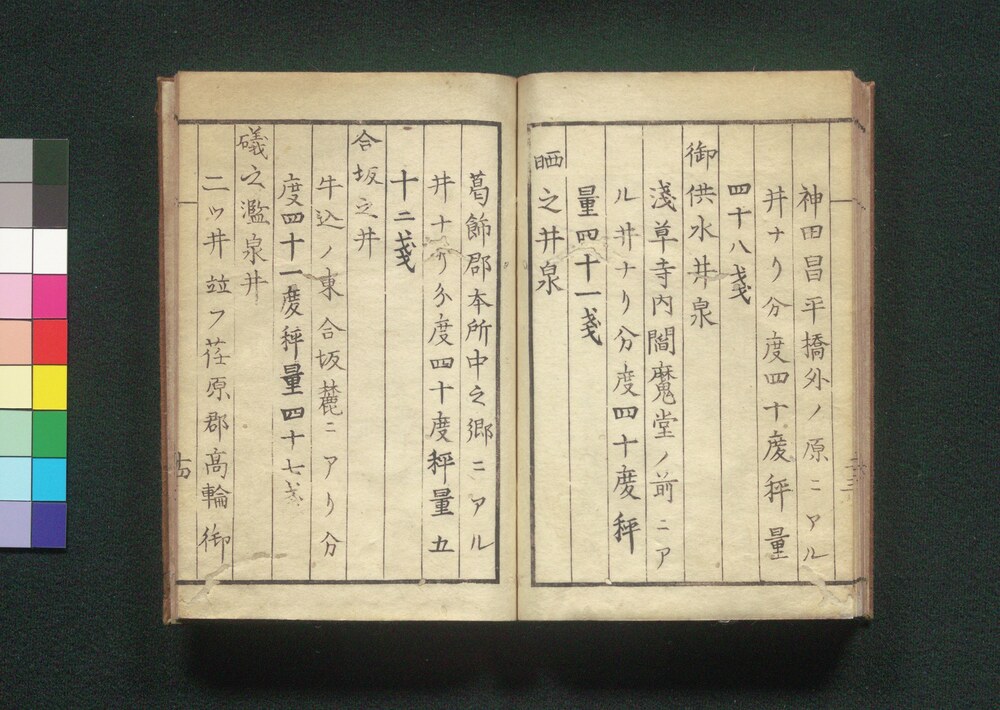 神田昌平橋外ノ原ニアル
井ナリ分度四十度秤量
四十八戔
御供水井泉
淺草寺内閻魔堂ノ前ニア
ル井ナリ分度四十度秤
量四十一戔
晒之井泉
葛飾郡本所中之郷ニアル
井ナリ分度四十度秤量五
十二戔
合坂之井
牛込ノ東合坂麓ニアリ分
度四十一度秤量四十七戔
礒之濫泉井
二ッ井竝フ荏原郡高輪御